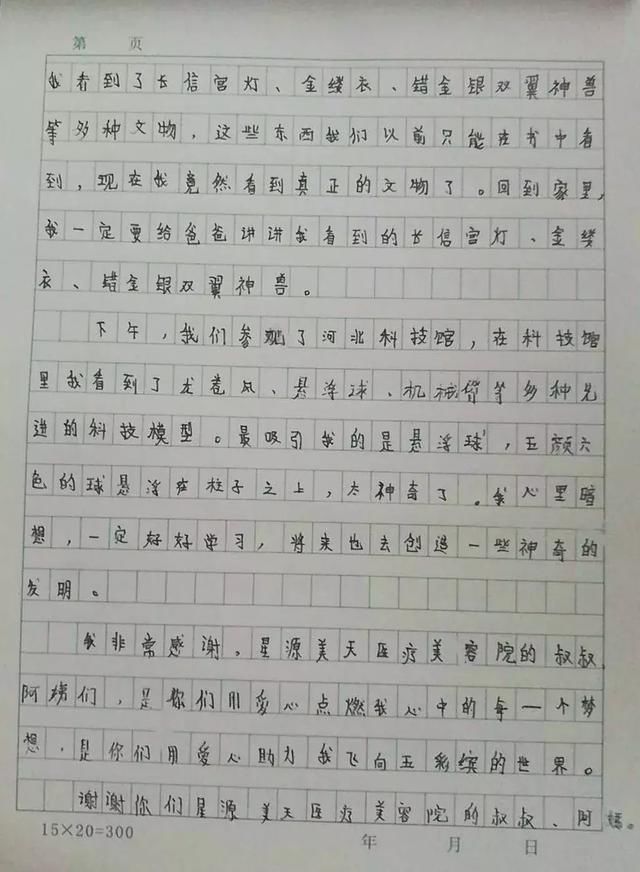 第 页
我看到了长信宫灯、金缕衣、错金银双翼神兽
等多种文物，这些东西我们以前只能在书中看
到，现在我竟然看到真正的文物了。回到家里，
我一定要给爸爸讲讲我看到的长信宫灯、金缕
衣、错金银双翼神兽。
下午，我们参观了河北科技馆，在科技馆
里我看到了龙卷风、悬浮球、机械臂等多种先
进的科技模型。最吸引我的是悬浮球，五颜六
色的球悬浮在柱子之上，太神奇了。我心里暗
想，一定好好学习，将来也去创造一些神奇的
发明。
我非常感谢，星源美天医疗美容院的叔叔
阿姨们，是你们用爱心点燃我心中的每一个梦
想，是你们用爱心助力我飞向五彩缤的世界。
谢谢你们星源美天医疗美容院的叔叔、阿姨。
15×20=300
年 月 日